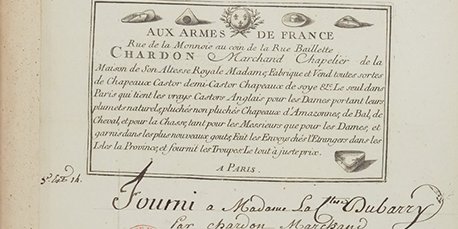 AUX ARMES DE FRANCE
Rue de la Monnoie au coin de la Rue Baillette
CHARDON Marchand Chapelier de la
Maison de Son Altesse Royale Madame, Fabrique et Vend toutes sortes
de Chapeaux Castor demi-Castor Chapeaux de soye &c. Le seul dans
Paris qui tient les vrays Castors Anglais pour les Dames portant leurs
plumets naturel, pluchés non pluchés Chapeaux d'Amazonne, de Bal, de
Cheval, et pour la Chasse, tant pour les Messieurs que pour les Dames, et
garnis dans les plus nouveaux gouts, Fait les Envoys chés l'Etranger dans les
Isles la Province, et fournit les Troupes. Le tout à juste prix.
A PARIS.
Fourni a Madame La Ctesse Dubarry
par chardon Marchand